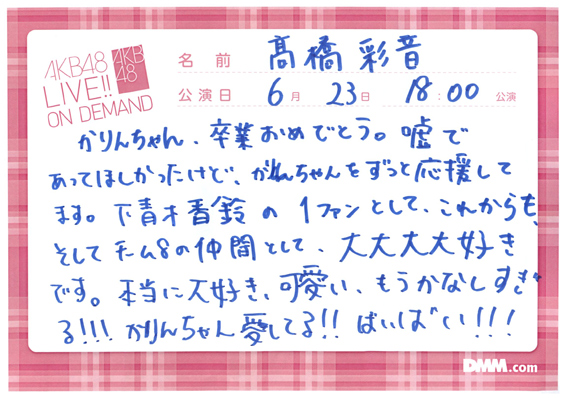 AKB48
LIVE!!
ON DEMAND
AKB
48
名前 髙橋彩音
公演日 6月 23日 18:00 公演
かりんちゃん、卒業おめでとう。嘘で
あってほしかったけど、かりんちゃんをずっと応援して
ます。下青木香鈴の1ファンとして、これからも、
そしてチーム8の仲間として、大大大大好き
です。本当に大好き、可愛い、もうかなしすぎ
る!!! かりんちゃん愛してる!! ばいばい!!!
DMM.com